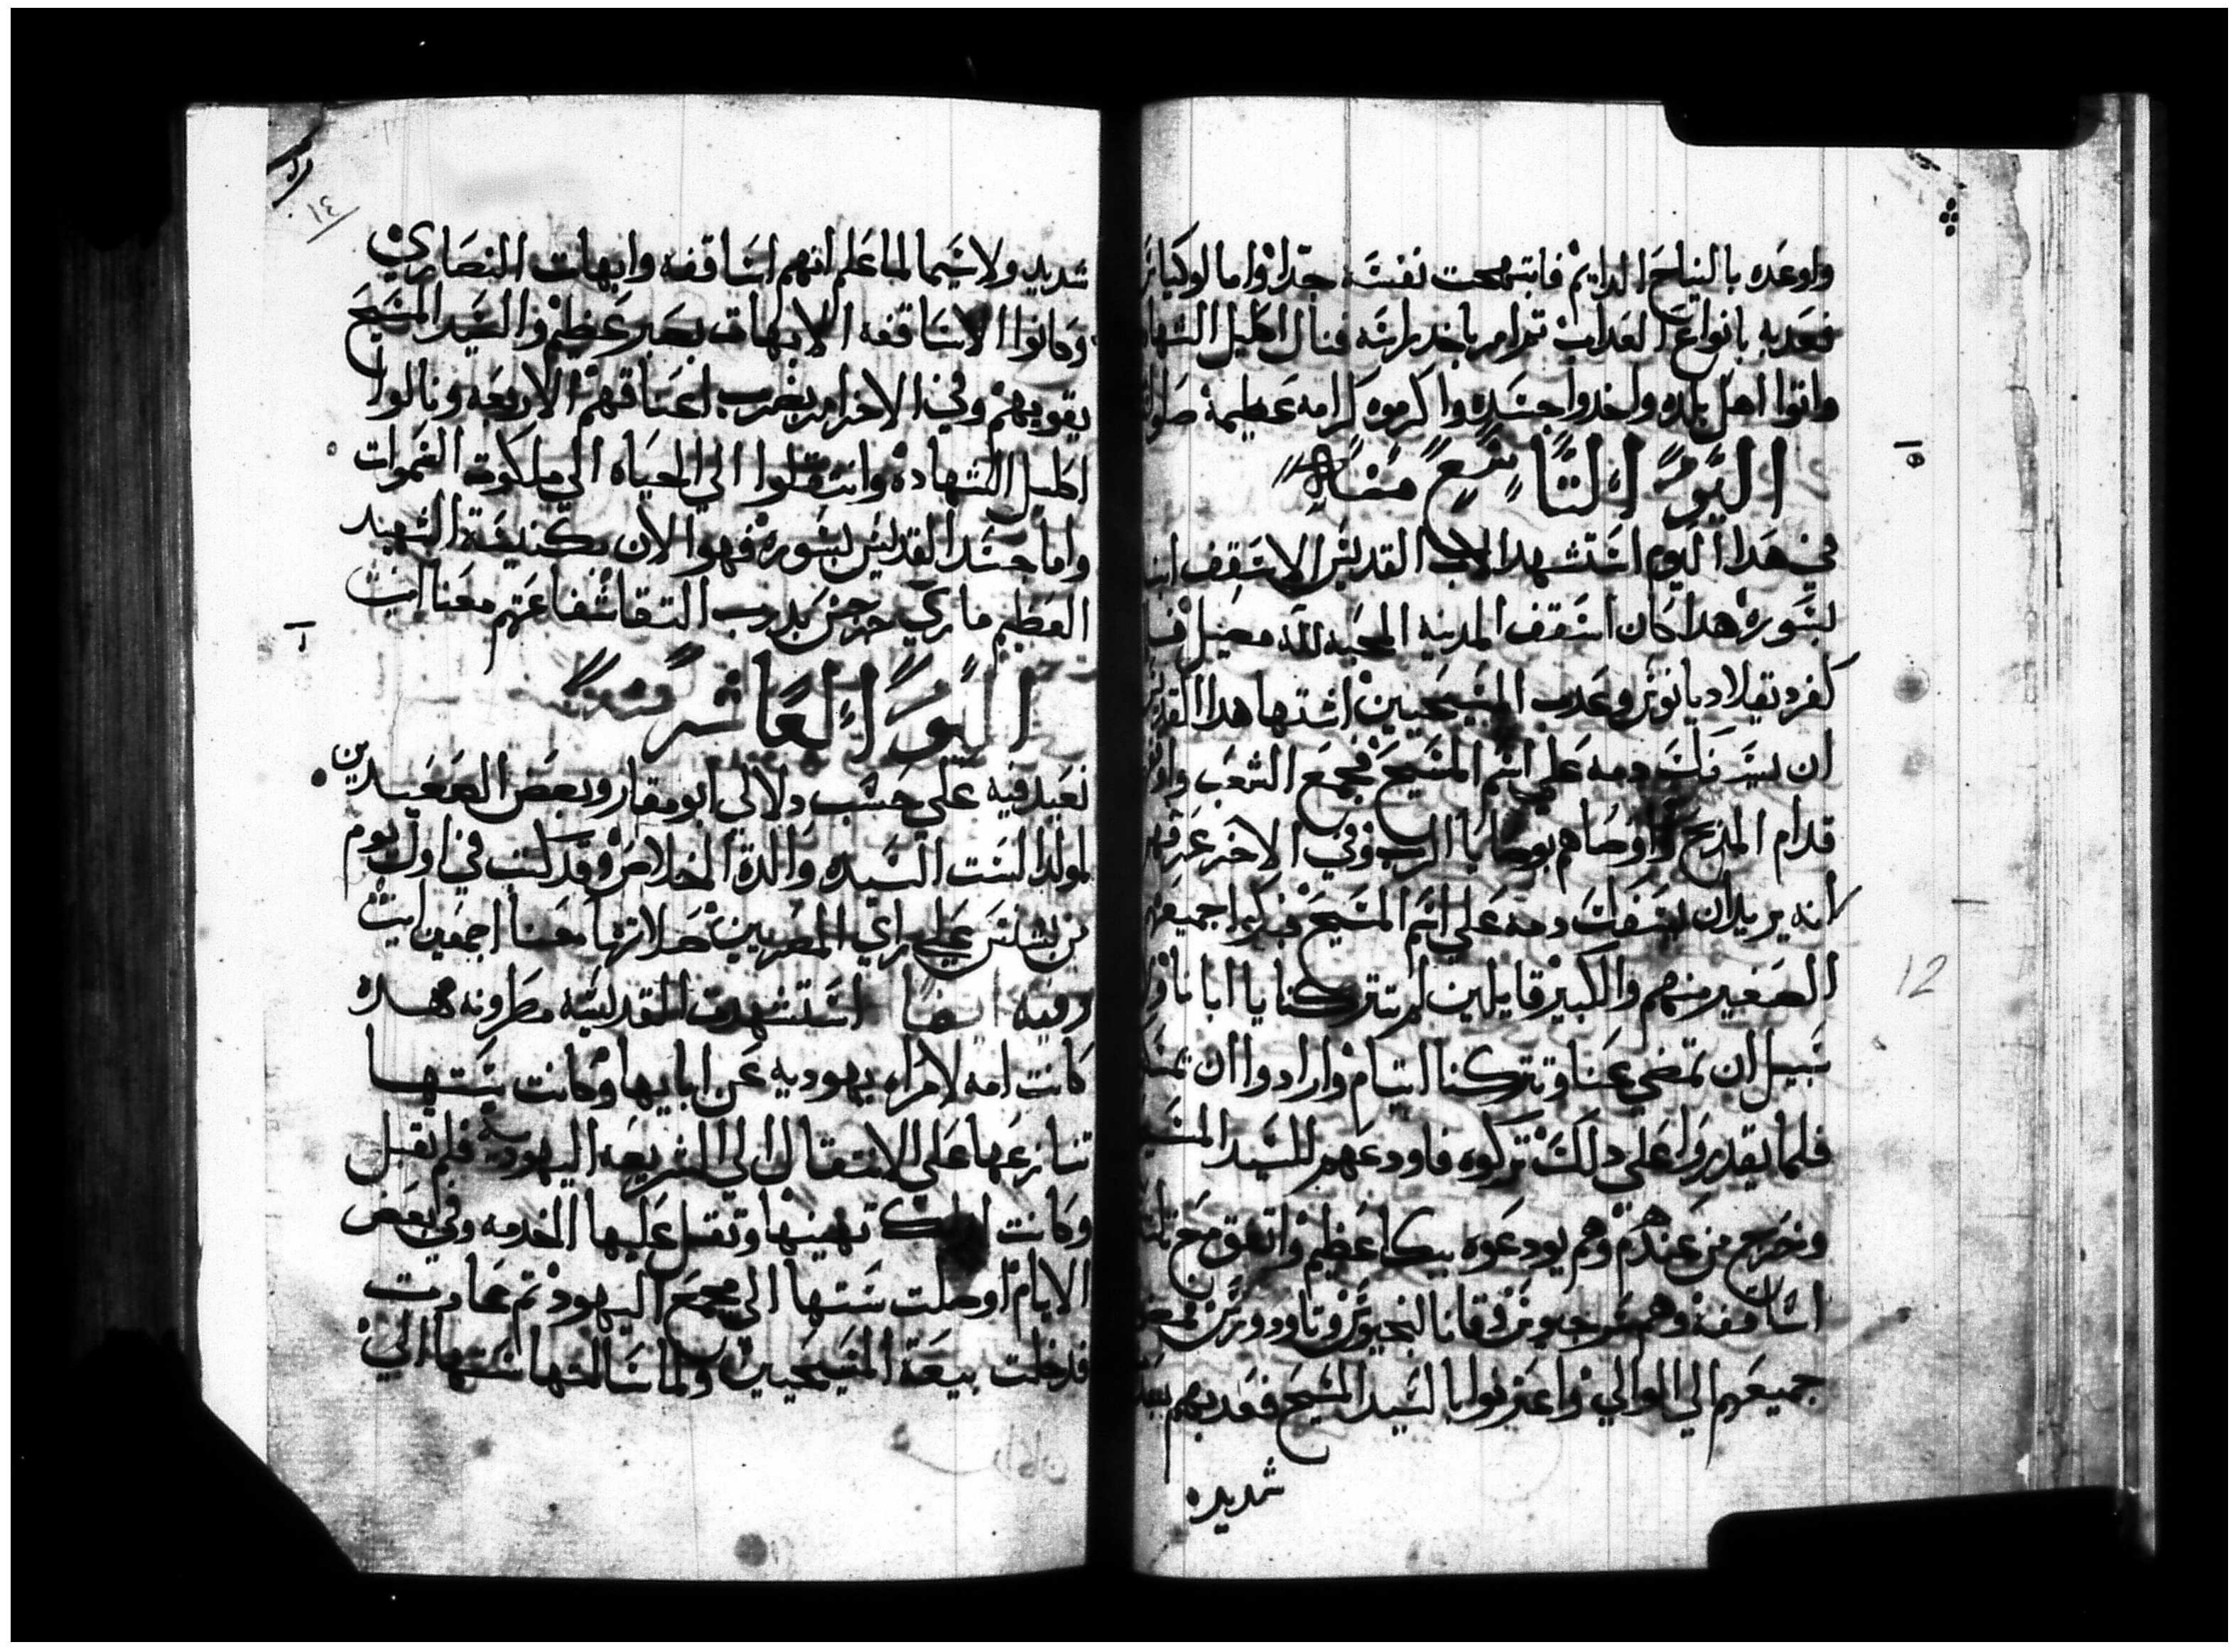 واوعده بالنياح الدايم فابتهجت نفسه جدا واما لوكيانوس
فعذبه بانواع العداب تم امر باخد راسه فنال اكليل الشهاده
واتوا اهل بلده واخدوا جسده واكرموه كرامه عظيمة
اليوم التاسع منه
في هدا اليوم استشهد الاب القديس الاسقف انبا
بسوره هدا كان اسقف المدينه المحبه لله مصيل
كفر دقلاديانوس وعدب المسيحيين اشتها هدا القديس
ان يسفك دمه على اسم المسيح فجمع الشعب
قدام المدبح واوصاهم بوصايا الرب وفي الاخر عرفهم
انه يريد ان يسفك دمه على اسم المسيح فبكوا جميعهم
الصغير منهم والكبير قايلين لم تتركنا يا ابانا
سبيل ان تمضي عنا وتتركنا ايتام وارادوا ان
فلما يقدروا على دلك تركوه فاودعهم للسيد المسيح
وخرج من عندهم وهم يودعوه ببكا عظيم واتفق مع تلته
اساقفه وهم
جميعهم الى الوالي واعترفوا بالسيد المسيح فعدبهم
شديده
١٤
شديد ولا سيما لما علم انهم اساقفه وابهات النصاري
وكانوا الاساقفه الابهات بصبر عظيم والسيد المسيح
يقويهم وفي الاخر امر بضرب اعناقهم الاربعه ونالوا
اكليل الشهاده وانتقلوا الي الحياه الي ملكوت السموات
واما جسد القديس بسوره فهوا الان بكنيسة الشهيد
العظيم ماري جرجس بدرب التقا شفاعتهم معنا امين
اليوم العاشر منه
نعيد فيه على حسب دلال ابو مقار وبعض الصعيدين
لمولد الست السيده والدة الخلاص وقد كتب في اول يوم
من بشنس على راي المصريين صلاتها معنا اجمعين امين
وفيه ايضا استشهدت القديسه مطرونه هده
كانت امه لامراه يهوديه عن ابايها وكانت ستها
تنازعها على الانتقال الي الشريعه اليهوديه فلم تقبل
وكانت تهينها وتقل عليها الخدمه وفي بعض
الايام اوصلت ستها الى مجمع اليهود تم عادت
فدخلت بيعة المسيحيين ولما سالتها ستها الي
12